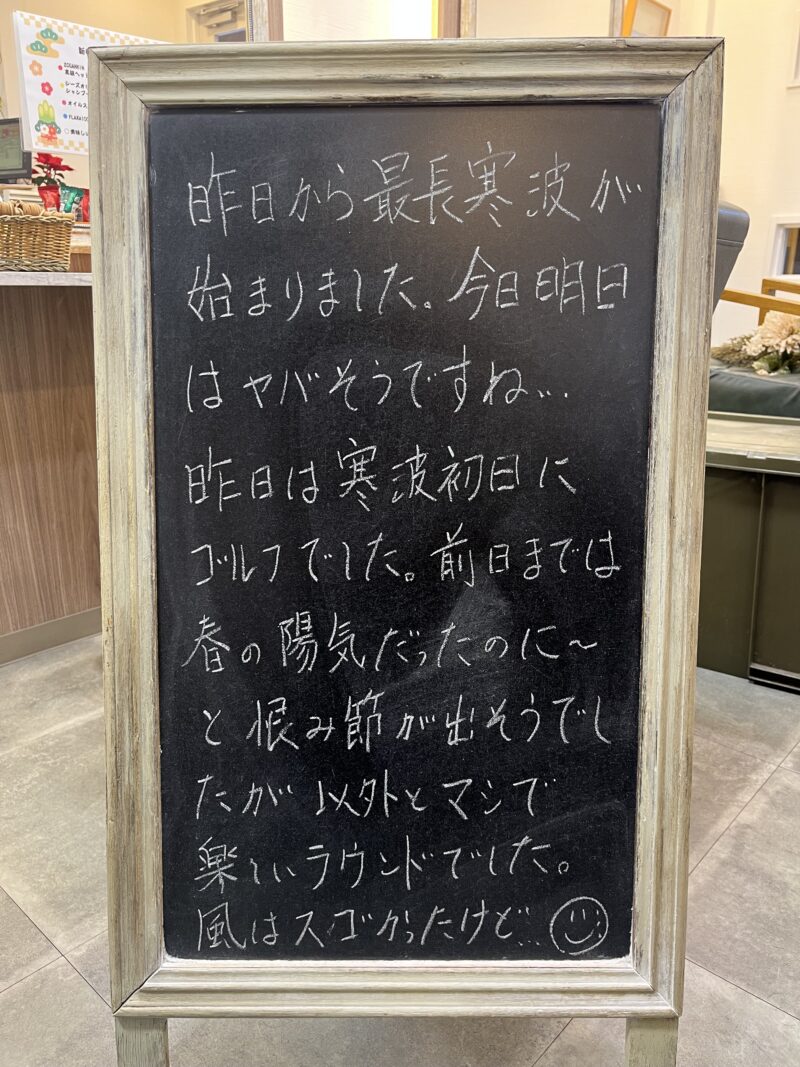 昨日から最長寒波が
始まりました。今日明日
はヤバそうですね…
昨日は寒波初日に
ゴルフでした。前日までは
春の陽気だったのに～
と恨み節が出そうでし
たが以外とマシで
楽しいラウンドでした。
風はスゴかったけど…